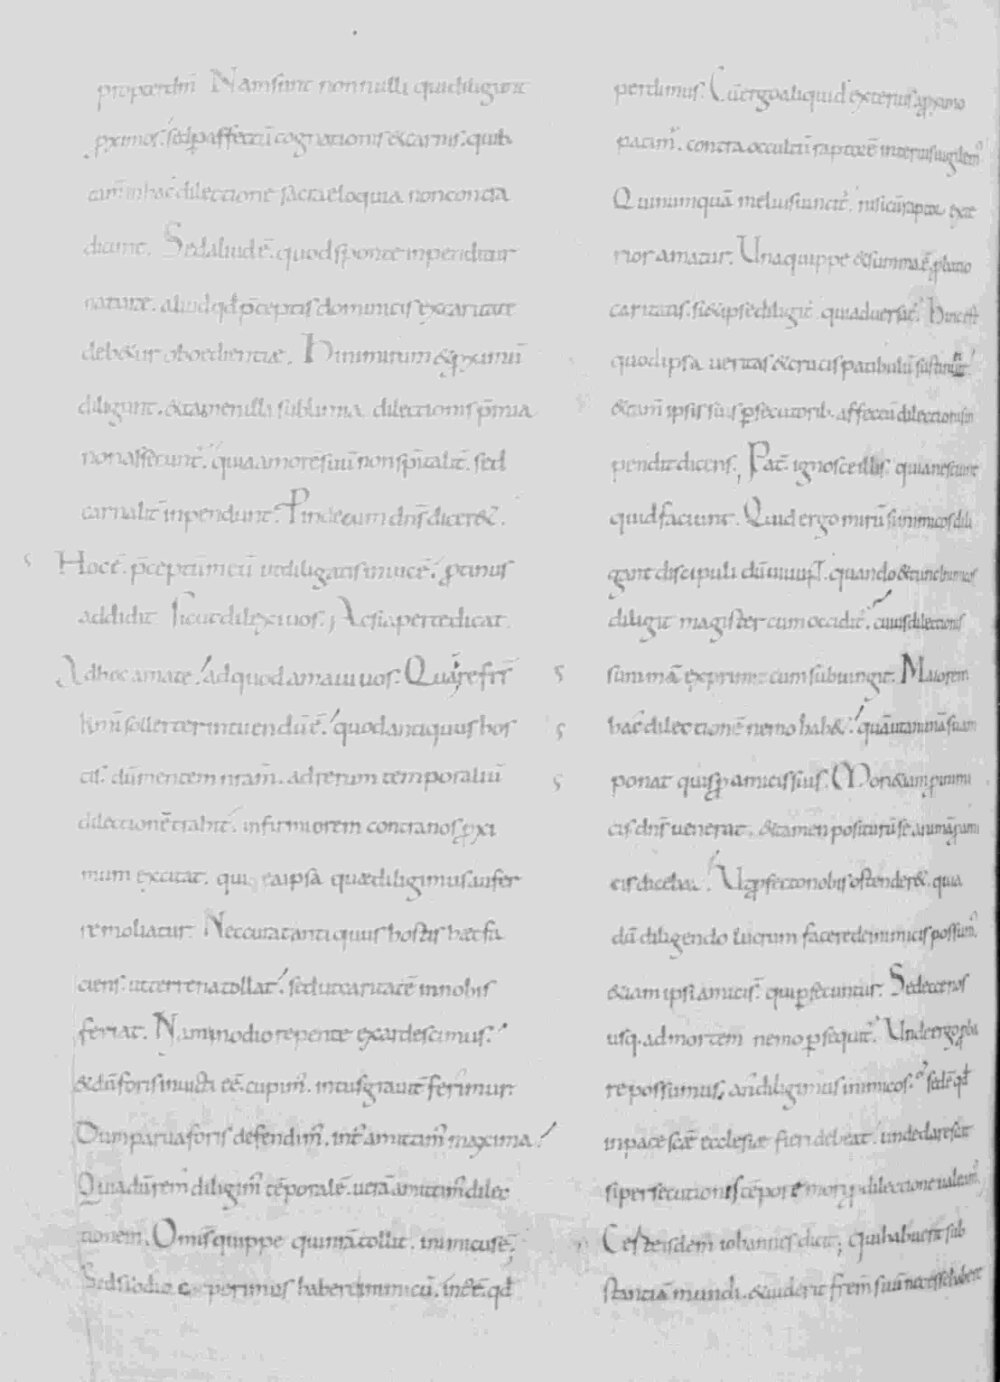 propter dm̄ Nam sunt nonnulli qui diligunt
ꝓximos. sed ꝑ affectū cognationis & carnis. quib.
tam̄ in hac dilectione sacra eloquia non contra
dicunt. Sed aliud ē. quod sponte inpenditur
naturae. aliud qd p̄ceptis dominicis ex caritate
deb&ur oboedientiae. Hi nimirum & ꝓximū
diligunt. & tamen illa sublimia dilectionis p̄mia
non assecunt̄. quia amorē suū non sp̄italit̄. sed
carnalit̄ inpendunt. Proinde cum dn̄s dicer&.
Hoc ē. p̄ceptū meū ut diligatis inuicē. ꝓtinus
addidit Sicut dilexi uos; Ac si aperte dicat.
Ad hoc amate! ad quod amaui uos. Qua in re fr̄s
km̄i sollerter intuendū ē! quod antiquus hos
tis. dū mentem nr̄am. ad rerum temporaliū
dilectionē trahit. infirmiorem contra nos ꝓxi
mum excitat. qui ea ipsa quae diligimus aufer
re moliatur. Nec curat antiquus hostis haec fa
ciens. ut terrena tollat! sed ut caritatē in nobis
feriat. Nam in odio repente exardescimus!
& dū foris inuicti eē cupim̄. intus grauit̄ ferimur.
Dum parua foris defendim̄. int̄ amittim̄ maxima!
Quia dū rem̄ diligim̄ tēporalē. uerā amittim̄ dilec
tionem. Omīs quippe qui nr̄a tollit. inimicus ē;
Sed si odio experimus habere inimicū. int̄ ē. qd
perdimus. Cū ergo aliquid exterius a ꝓximo
patim̄. contra occultū raptorē interius uigilem̄
Qui numquā melius uincit̄. nisi cū raptor exte
rior amatur. Una quippe & summa ē. ꝓbatio
caritatis. si & ipse diligit̄. qui aduersat̄. Hinc est
quod ipsa ueritas & crucis patibulū sustinuit!
& tam̄ ipsis suis ꝑsecutorib. affectū dilectionis in
pendit dicens; Pat̄. ignosce illis. quia nesciunt
quid faciunt. Quid ergo mirū si inimicos dili
gant discipuli dū uiuunt. quando & tunc inimicos
diligit magister cum occidit̄. cuius dilectionis
summā exprimit cum subiungit. Maiorem
hac dilectionē nemo hab&! quā ut animā suam
ponat quis ꝓ amicis suis. Mori &iam ꝓ inimi
cis dn̄s uenerat. & tamen positurū se animā ꝓ ami
cis dicebat! Ut ꝓfecto nobis ostender&. quia
dū diligendo lucrum facere de inimicis possum̄.
&iam ipsi amici s̄. qui ꝑsecuntur. Sed ecce nos
usq. ad mortem nemo ꝑsequit̄. Unde ergo ꝓba
re possumus. an diligimus inimicos! sed ē qd
in pace scae ecclesiae fieri debeat. unde clarescat
si persecutionis tēpore mori ꝓ dilectione ualeam̄.
Certe isdem iohannes dicit; qui habuerit sub
stantiā mundi. & uiderit frem̄ suū necesse habere